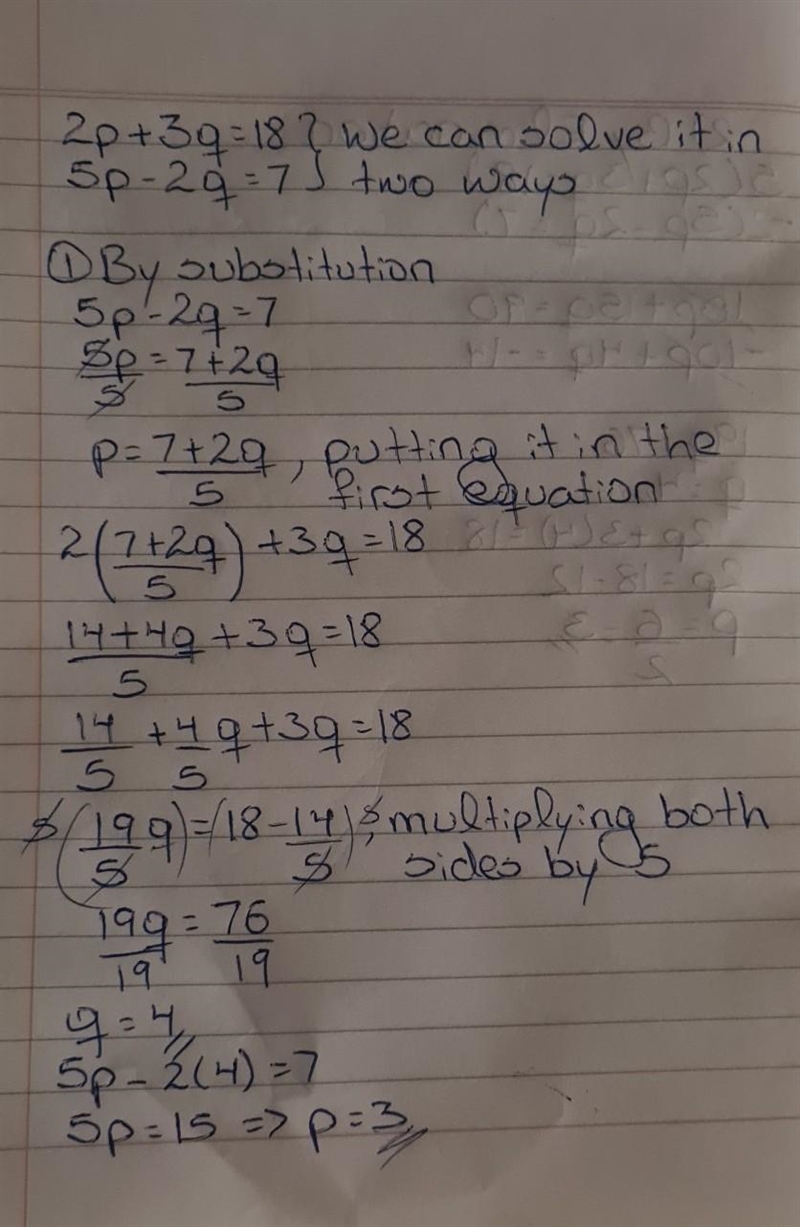 2p+3q=18} we can solve it in
5p-2q=7} two ways
① By substitution
5p-2q=7
5p/5 = 7+2q/5
p = 7+2q/5, putting it in the
first equation
2(7+2q/5)+3q=18
14+4q/5 +3q=18
14/5 + 4/5 q+3q=18
5(19/5 q)=(18-14/5)5, multiplying both
sides by 5
19q/19 = 76/19
q=4
5p-2(4)=7
5p=15 => p=3